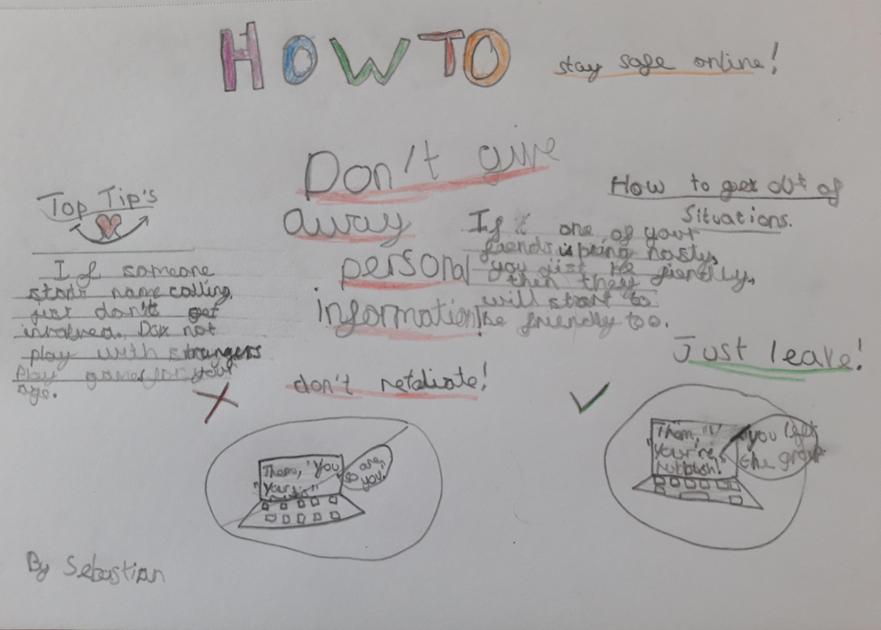 HOW TO
stay safe online!
Top Tip's
If someone
starts name calling,
just don't get
involved. Do not
play with strangers
Play games for your
age.
Don't give
away
personal
information!
How to get out of
Situations.
If one of your
friends is being nasty,
you just be friendly,
then they
will start to
be friendly too.
don't retaliate!
Them, "You
so are
you!
Just leave!
Them, "
your're
rubbish!"
you left
the group
By Sebastian